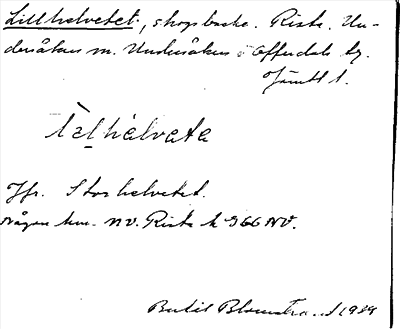 Lillhelvetet, skogsbacke. Rista. Un-
dersåkers sn. Undersåkers o Offerdals tg.
Jämtl. l.
lalhälvata
Jfr. Storhelvetet.
Någon km. NV. Rista k 966 NV.
Bertil Blomstrand 1939